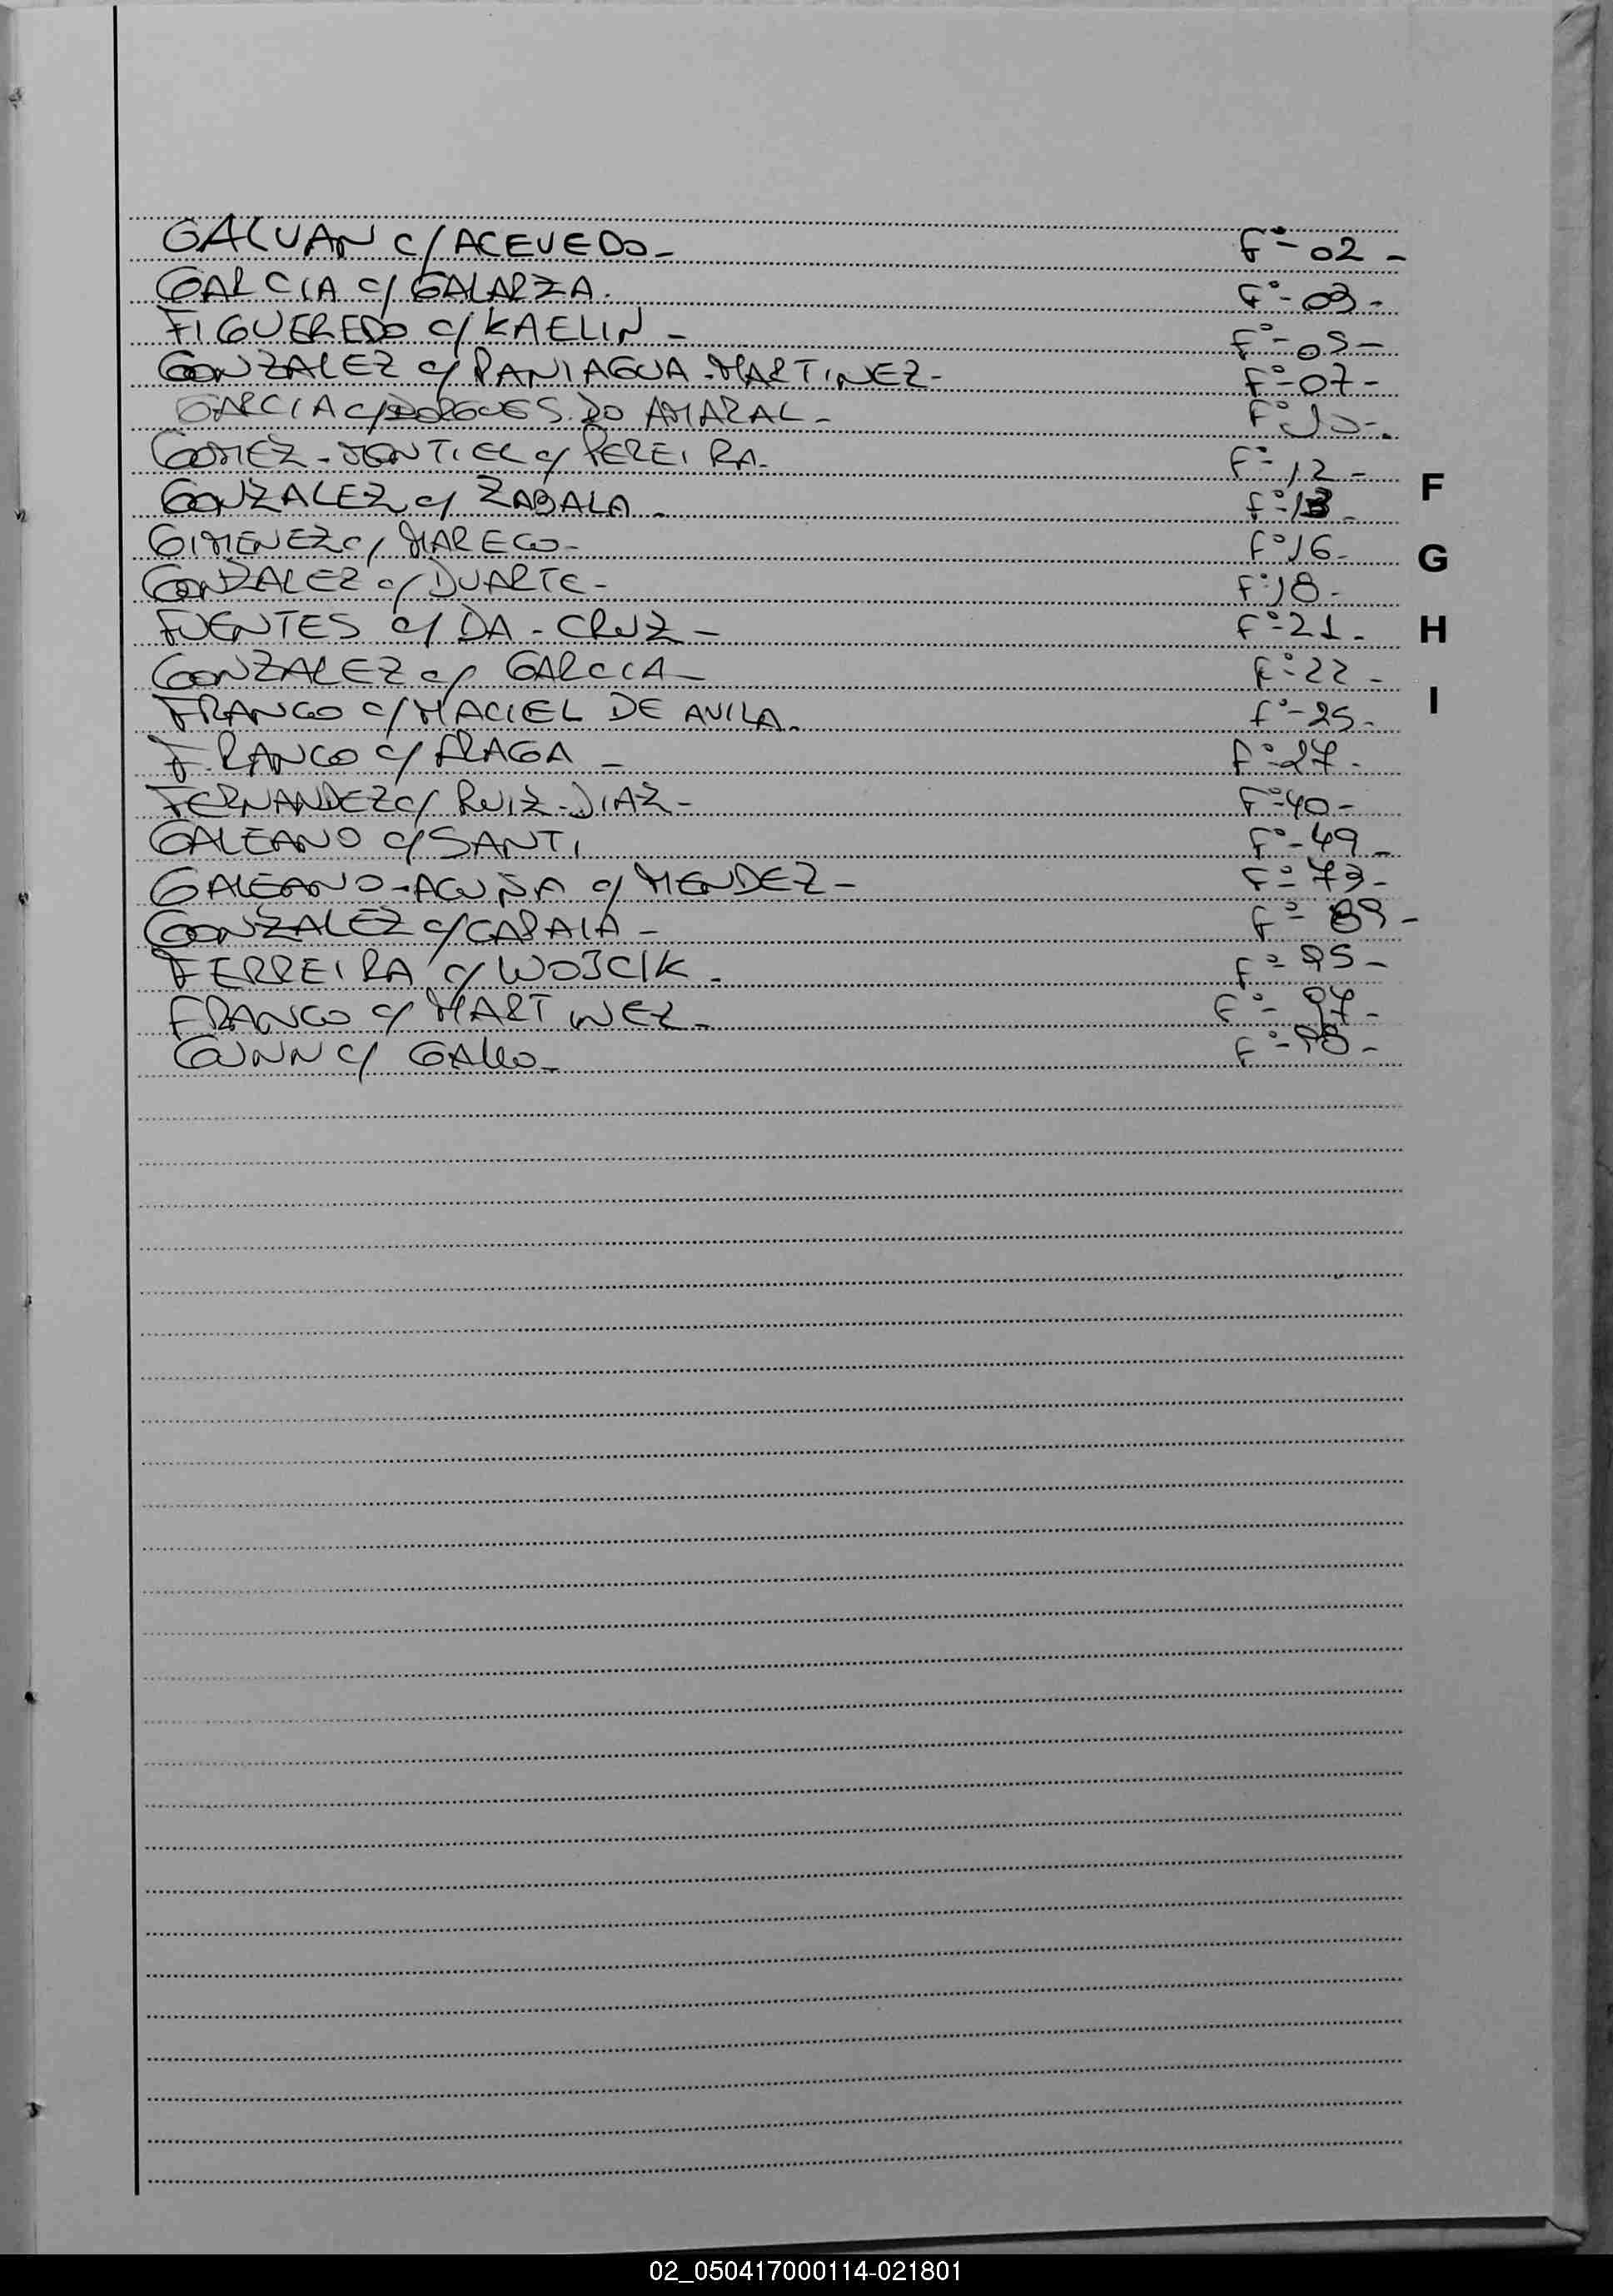 GALVAN C/ ACEVEDO- F°- 02-
GARCIA C/ GALARZA. F°- 03-
FIGUEREDO C/ KAELIN - F°- 05-
GONZALEZ C/ PANIAGUA-MARTINEZ- F°-07-
GARCIA C/ DO AMARAL- F°
GOMEZ-MONTIEL C/ PEREIRA- F°-12-
GONZALEZ C/ ZABALA- F°-13-
GIMENEZ C/ MARECO- F°16-
GONZALEZ C/ DUARTE- F°18-
FUENTES C/ DA-CRUZ- F°-21-
GONZALEZ C/ GARCIA- F°-22-
FRANCO C/ MACIEL DE AVILA- F°-25-
FRANCO C/ FRAGA - F°-27-
FERNANDEZ C/ RUIZ-DIAZ- F°-40-
GALEANO C/ SANTI F°-49-
GALEANO-ACUÑA C/ MENDEZ- F°-73-
GONZALEZ C/ F°- 89-
FERREIRA C/ WOJCIK- F°- 95-
FRANCO C/ MARTINEZ- F°- 97-
GUNN C/ GALLO- F°-98-
F
G
H
I
02_050417000114-021801